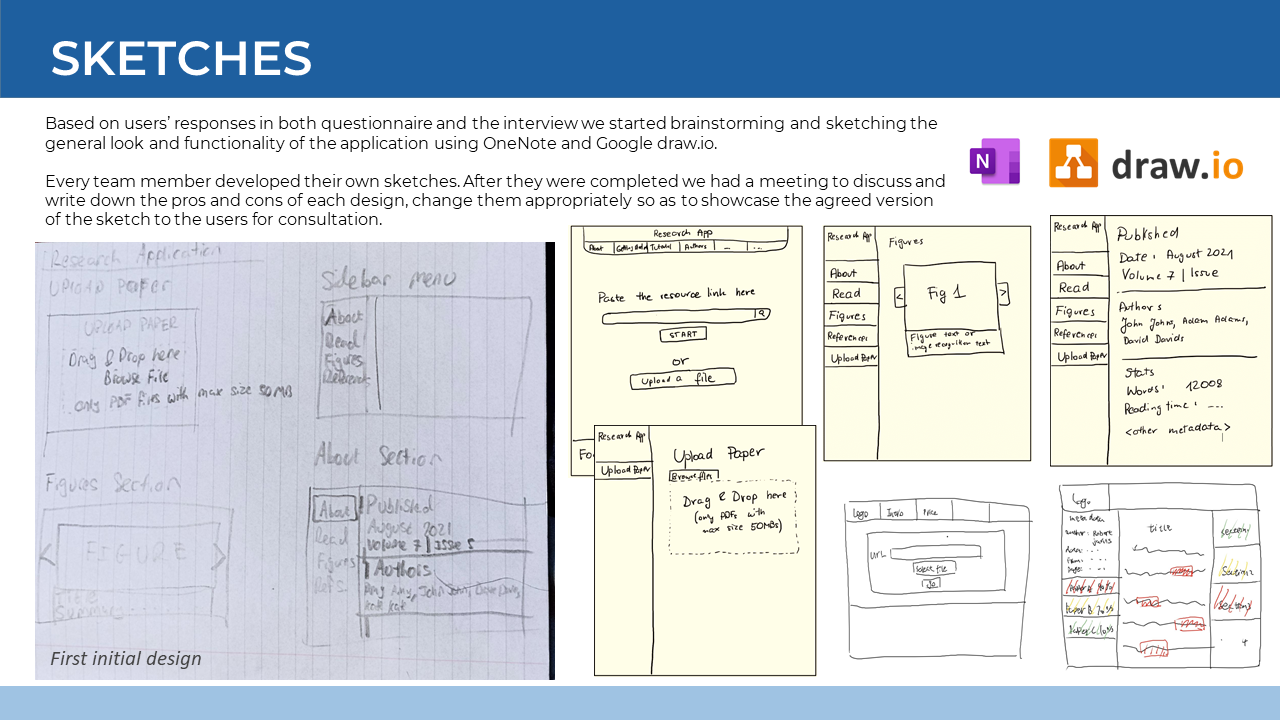 SKETCHES
Based on users’ responses in both questionnaire and the interview we started brainstorming and sketching the
general look and functionality of the application using OneNote and Google draw.io.
Every team member developed their own sketches. After they were completed we had a meeting to discuss and
write down the pros and cons of each design, change them appropriately so as to showcase the agreed version
of the sketch to the users for consultation.
N
draw.io
Research Application
UPLOAD PAPER
UPLOAD PAPER
Drag & Drop here
Browse File
only PDF files with max size 50MB
Sidebar menu
About
Read
Figures
Figures Section
FIGURE
Title
Summary...
About Section
About
Read
Figures
Refs.
Published
August 2021
Volume 7 | Issue 5
Authors
First initial design
Research App
About
Tutorial
Authors
...
...
Paste the resource link here
START
or
Upload a file
Fo
Research App
Upload Paper
Upload Paper
Browse files
Drag & Drop here
(only PDFs with
max size 50MBs)
Research App
About
Read
Figures
References
Upload Paper
Figures
<
Fig 1
>
Figure text or
image recognition text
Research App
About
Read
Figures
References
Upload Paper
Published
Date: August 2021
Volume 7 | Issue
Authors
John Johns, Adam Adams,
David Davids
Stats
Words: 12008
Reading time: ...
<other metadata>
Logo
Intro
Price
URL
Select file
Go
Logo
meta data
title